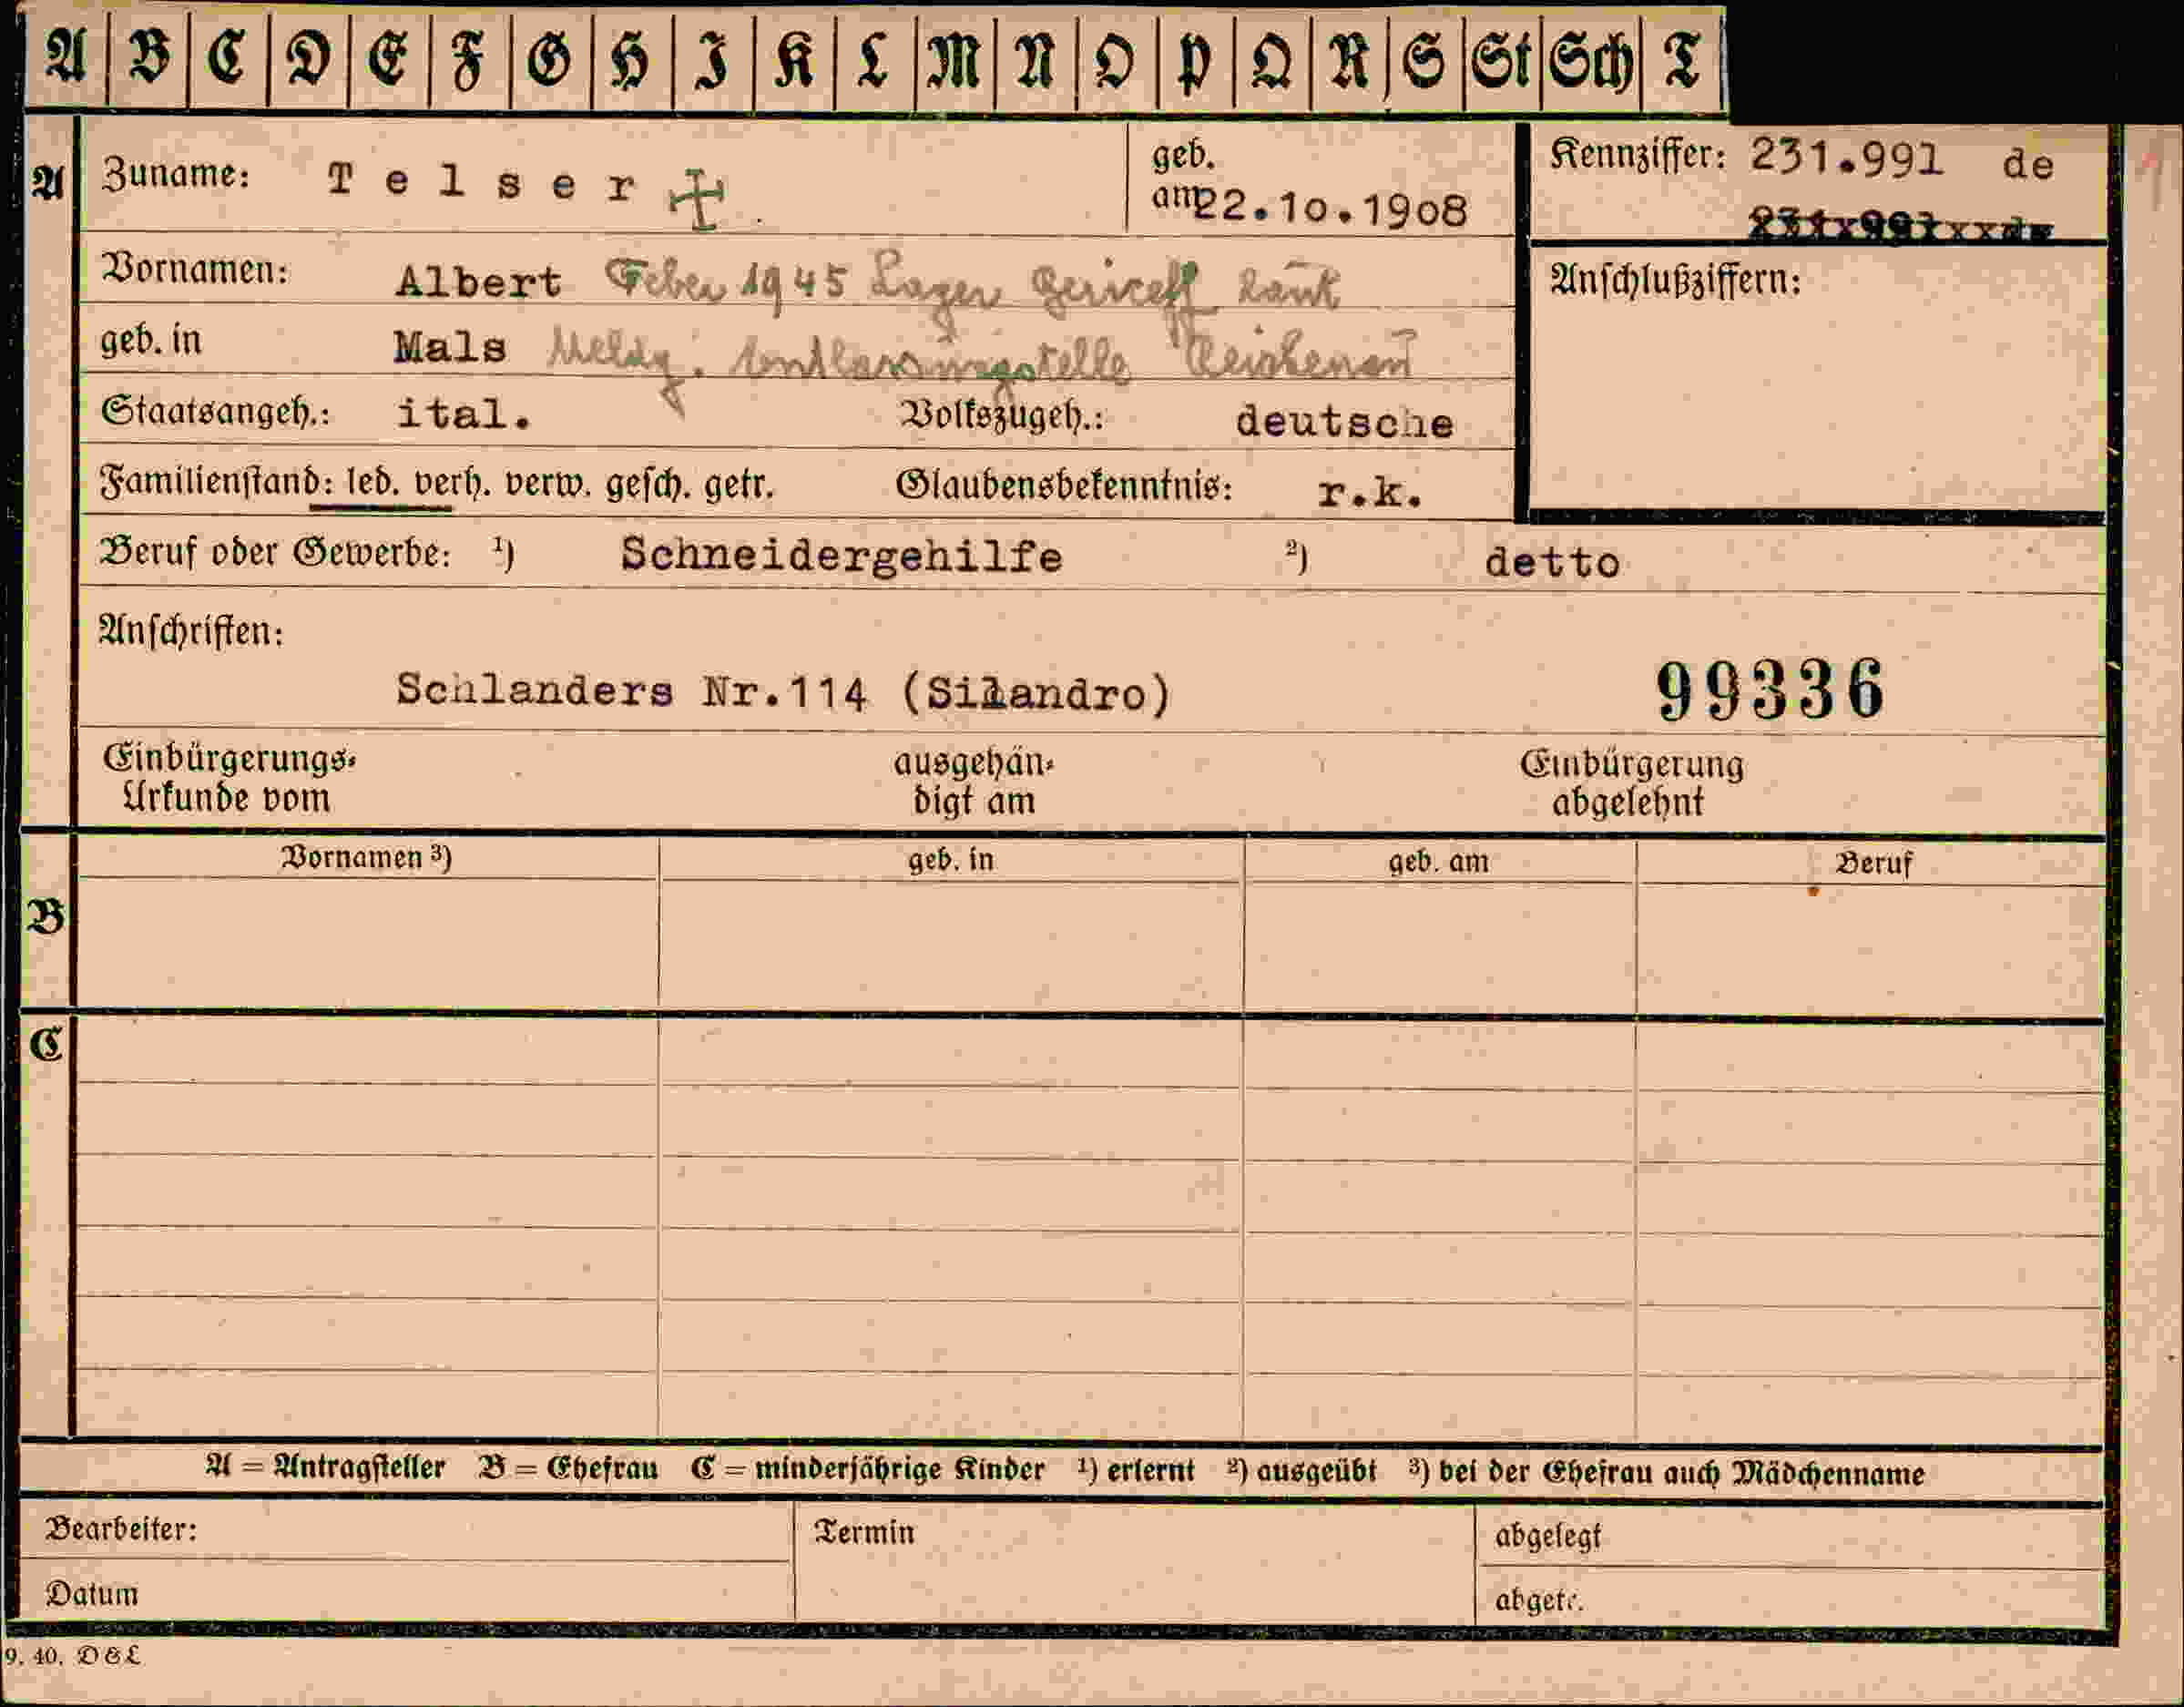 A B C D E F G H I K L M N O P Q R S St Sch T
A Zuname: Telser geb. am 22.10.1908 Kennziffer: 231.991 de
Vornamen: Albert Feber 1945 Lager laut Anschlußziffern:
geb. in Mals Meldg. Entlassungstelle Reichenau
Staatsangeh.: ital. Volkszugeh.: deutsche
Familienstand: led. verh. verw. gesch. getr. Glaubensbekenntnis: r.k.
Beruf oder Gewerbe: ¹) Schneidergehilfe ²) detto
Anschriften:
Schlanders Nr.114 (Silandro) 99336
Einbürgerungs- ausgehän- Einbürgerung
Urkunde vom digt am abgelehnt
Vornamen ³) geb. in geb. am Beruf
B
C
A = Antragsteller B = Ehefrau C = minderjährige Kinder ¹) erlernt ²) ausgeübt ³) bei der Ehefrau auch Mädchenname
Bearbeiter: Termin abgelegt
Datum abgetr.
9. 40. D & L